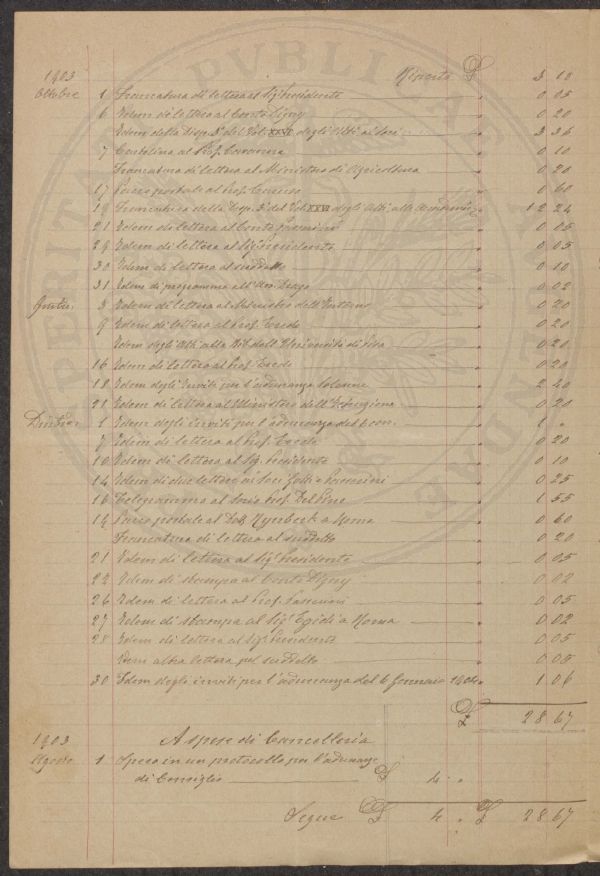 PROSPERITATI PUBLICAE AUGENDAE
1903 Riporto £ 3 10
Ottobre 1 Francatura di lettera al Sig. Presidente 0 05
6 Idem di lettera al Conte Digny 0 20
Idem della Disp. 3ª del Vol. XXVI degli Atti ai Soci 3 36
7 Cartolina al Prof. Caruana 0 10
Francatura di lettera al Ministero di Agricoltura 0 20
17 Pacco postale al Prof. 0 60
19 Francatura della Disp. 3ª del Vol. XXVI degli Atti alle Accademie 12 24
21 Idem di lettera al Conte 0 05
29 Idem di lettera al Sig. Presidente 0 05
30 Idem di lettera al suddetto 0 10
31 Idem di programma all' 0 02
3 Idem di lettera al Ministro dell'Interno 0 20
9 Idem di lettera al Prof. Tarde 0 20
Idem degli Atti alla Bib. dell'Università di Pisa 0 20
16 Idem di lettera al Prof. 0 20
18 Idem degli Inviti per l'adunanza Solenne 2 40
21 Idem di lettera al Ministero dell'Istruzione 0 20
1 Idem degli inviti per l'adunanza del 6 corr. 1 "
7 Idem di lettera al Prof. 0 20
10 Idem di lettera al Sig. Presidente 0 10
14 Idem di due lettere ai Soci e 0 25
16 Telegramma al Socio Prof. Del Pane 1 55
19 Pacco postale al Dott. a Roma 0 60
Francatura di lettera al suddetto 0 20
21 Idem di lettera al Sig. Presidente 0 05
Idem di stampa al Conte Digny 0 02
26 Idem di lettera al Prof. 0 05
27 Idem di stampa al Sig. Egidi a Roma 0 02
28 Idem di lettera al Sig. Presidente 0 05
Idem altra lettera pel suddetto 0 05
30 Idem degli inviti per l'adunanza del 6 Gennaio 1904 1 06
£ 28 67
1903 A spese di Cancelleria
Agosto 1 Speso in un protocollo per l'adunanze
di Consiglio £ 4 "
Segue £ 4 " £ 28 67